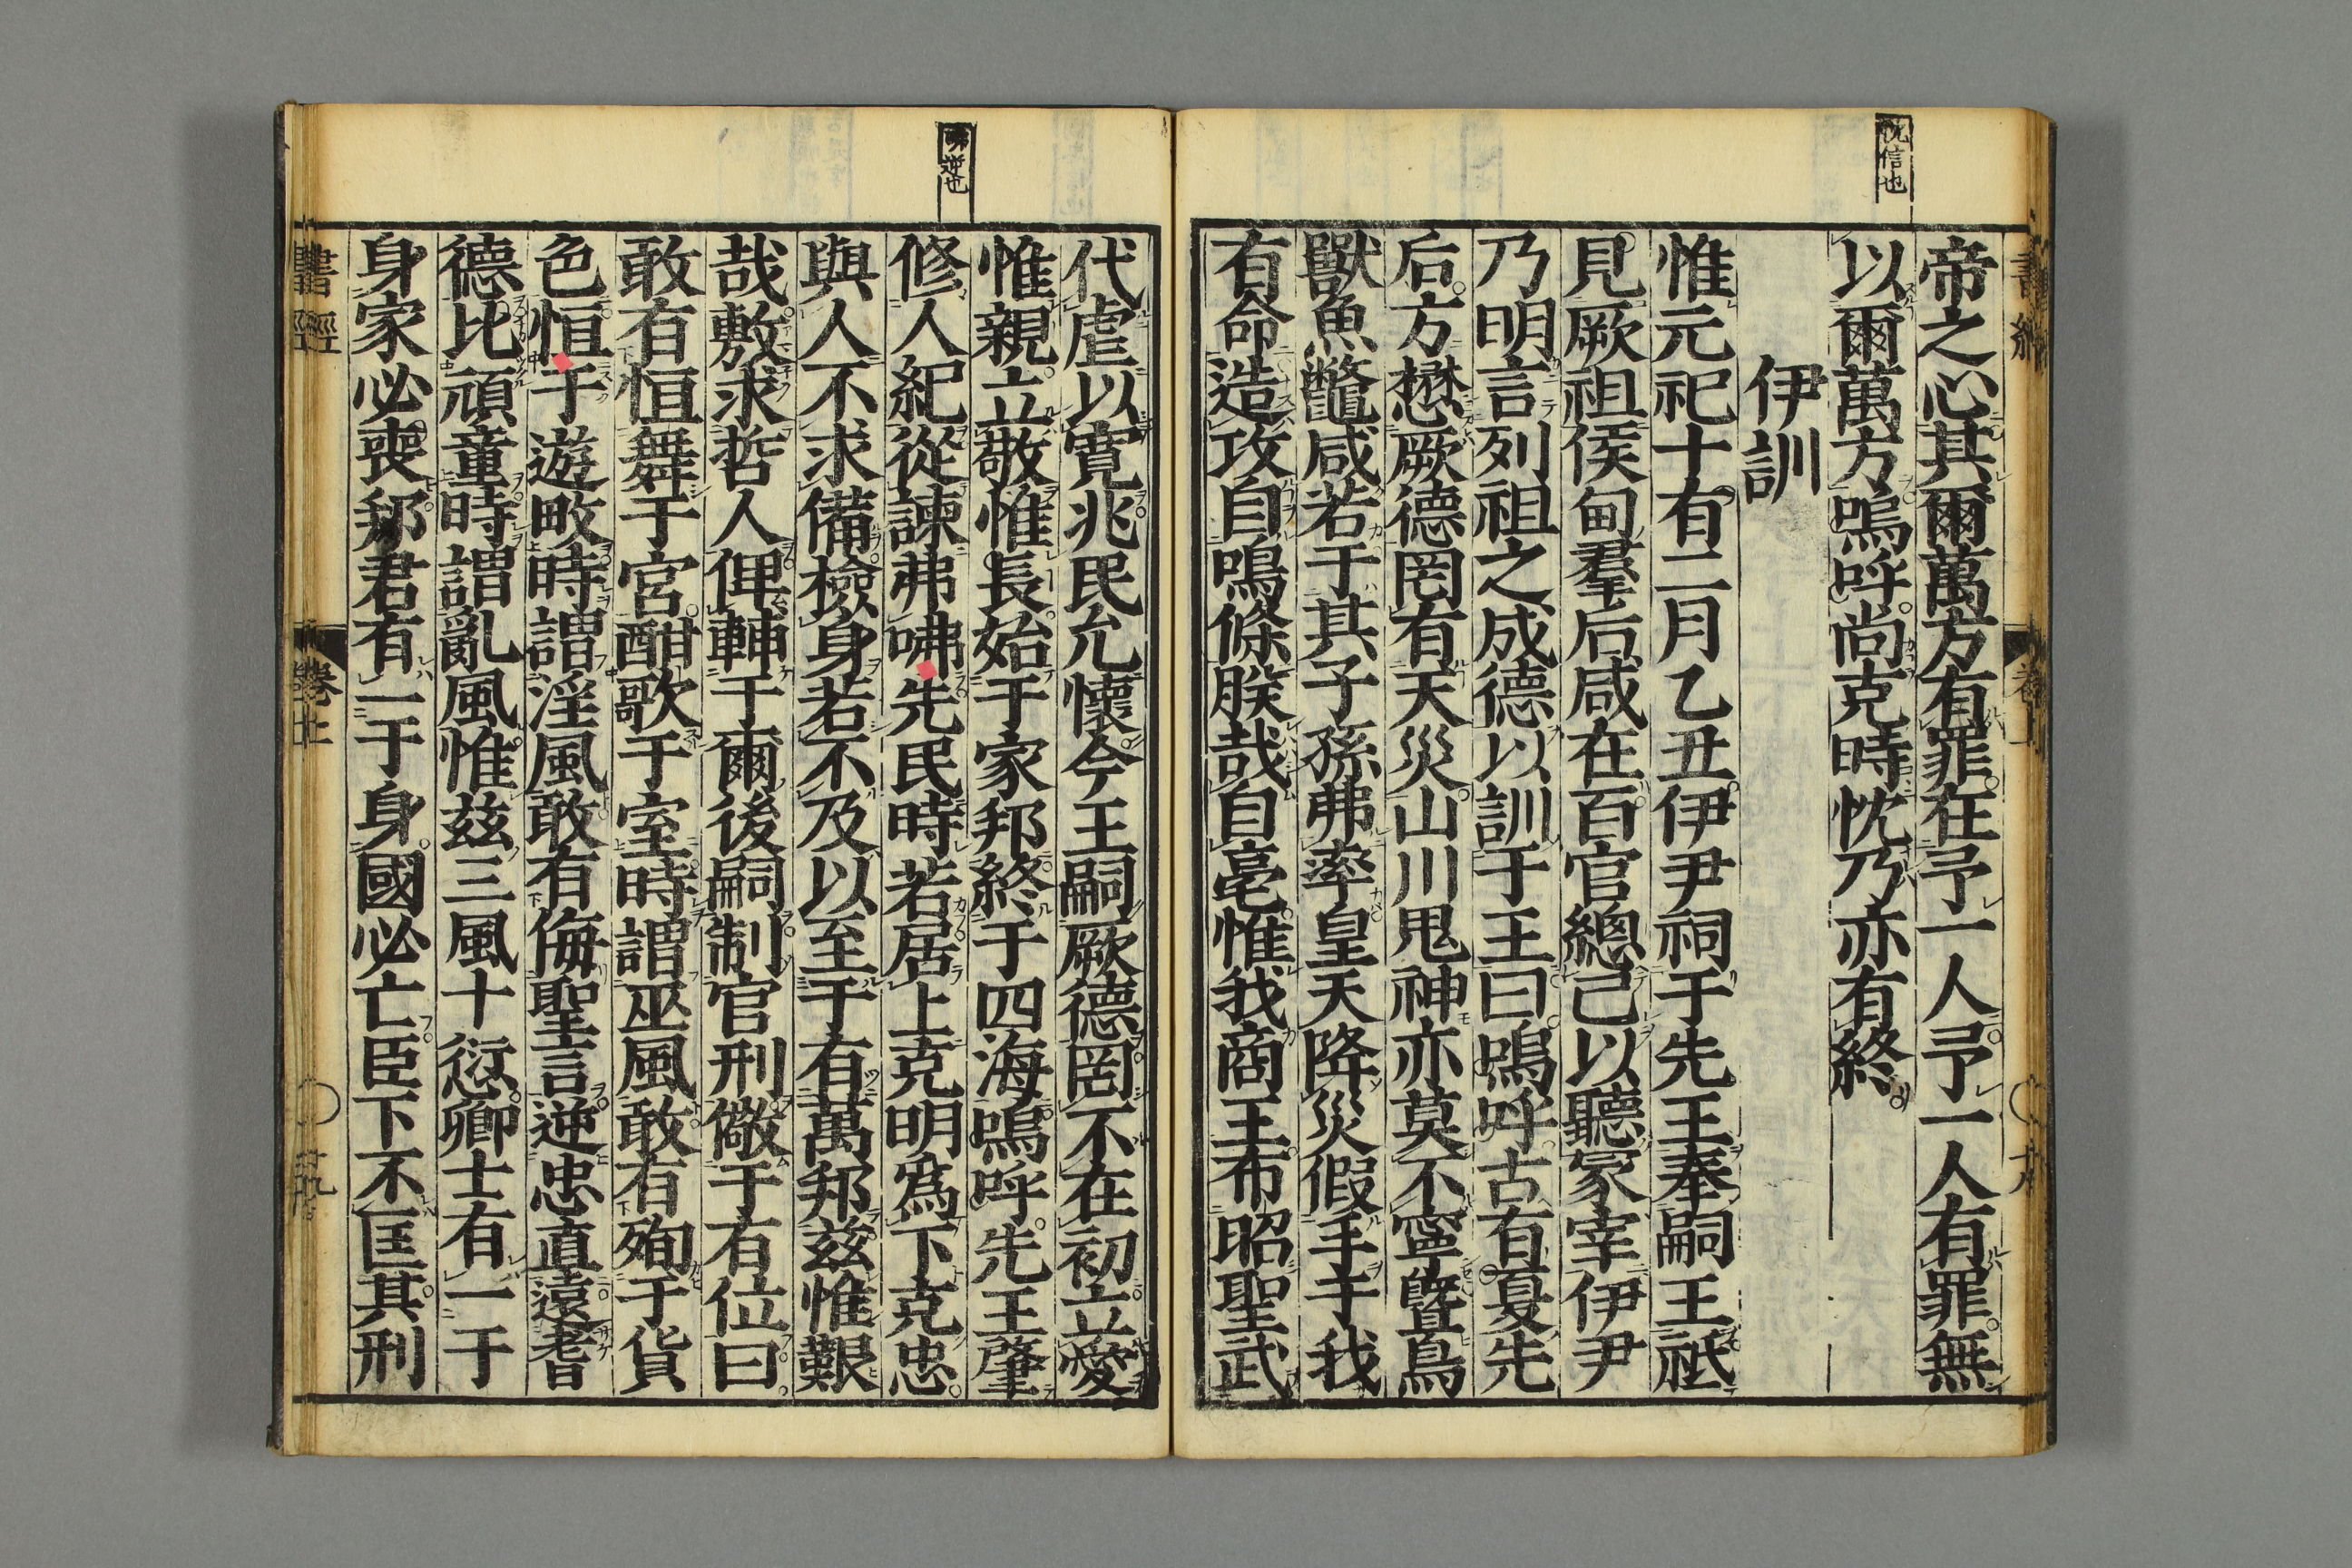 忱信也
帝之心其爾萬方有罪在予一人予一人有罪無
以爾萬方嗚呼尚克時忱乃亦有終
伊訓
惟元祀十有二月乙丑伊尹祠于先王奉嗣王祗
見厥祖侯甸羣后咸在百官總己以聽冢宰伊尹
乃明言列祖之成德以訓于王曰嗚呼古有夏先
后方懋厥德罔有天災山川鬼神亦莫不寧曁鳥
獸魚鼈咸若于其子孫弗率皇天降災假手于我
有命造攻自鳴條朕哉自亳惟我商王布昭聖武
咈逆也
代虐以寬兆民允懷今王嗣厥德罔不在初立愛
惟親立敬惟長始于家邦終于四海嗚呼先王肇
修人紀從諫弗咈先民時若居上克明爲下克忠
與人不求備檢身若不及以至于有萬邦茲惟艱
哉敷求哲人俾輔于爾後嗣制官刑儆于有位曰
敢有恒舞于宮酣歌于室時謂巫風敢有殉于貨
色恒于遊畋時謂淫風敢有侮聖言逆忠直遠耆
德比頑童時謂亂風惟茲三風十愆卿士有一于
身家必喪邦君有一于身國必亡臣下不匡其刑
書經